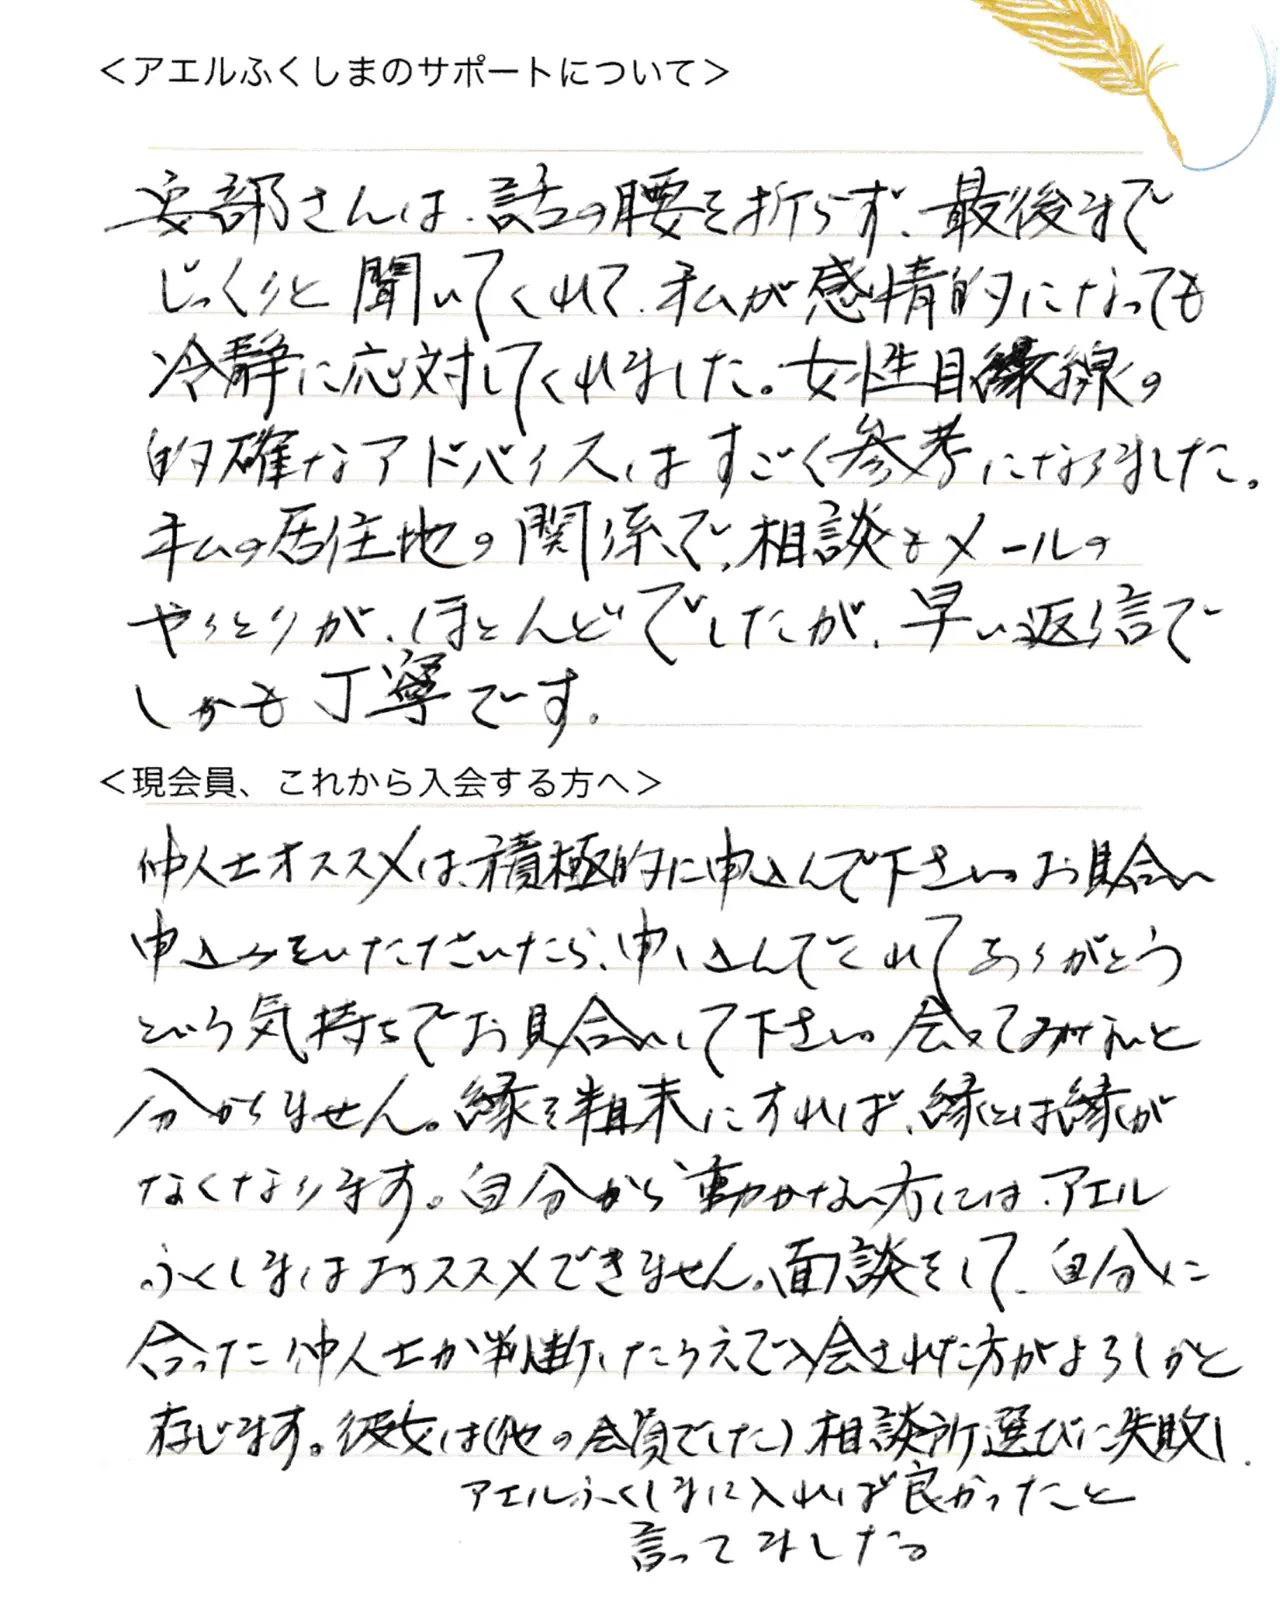 ＜アエルふくしまのサポートについて＞
安部さんは、話の腰を折らず、最後まで
じっくりと聞いてくれて、私が感情的になっても
冷静に応対してくれました。女性目線の
的確なアドバイスはすごく参考になりました。
私の居住地の関係で、相談もメールの
やりとりが、ほとんどでしたが、早い返信で
しかも丁寧です。
＜現会員、これから入会する方へ＞
仲人士オススメは、積極的に申込んで下さい。お見合い
申込みをいただいたら、申し込んでくれてありがとう
という気持ちでお見合いして下さい。会ってみないと
分かりません。縁を粗末にすれば、縁とは縁が
なくなります。自分から動かない方には、アエル
ふくしまはおススメできません。面談をして、自分に
合った仲人士か判断したうえで入会された方がよろしいかと
存じます。彼女は(他の会員でした)相談所選びに失敗し、
アエルふくしまに入れば良かったと
言ってました。